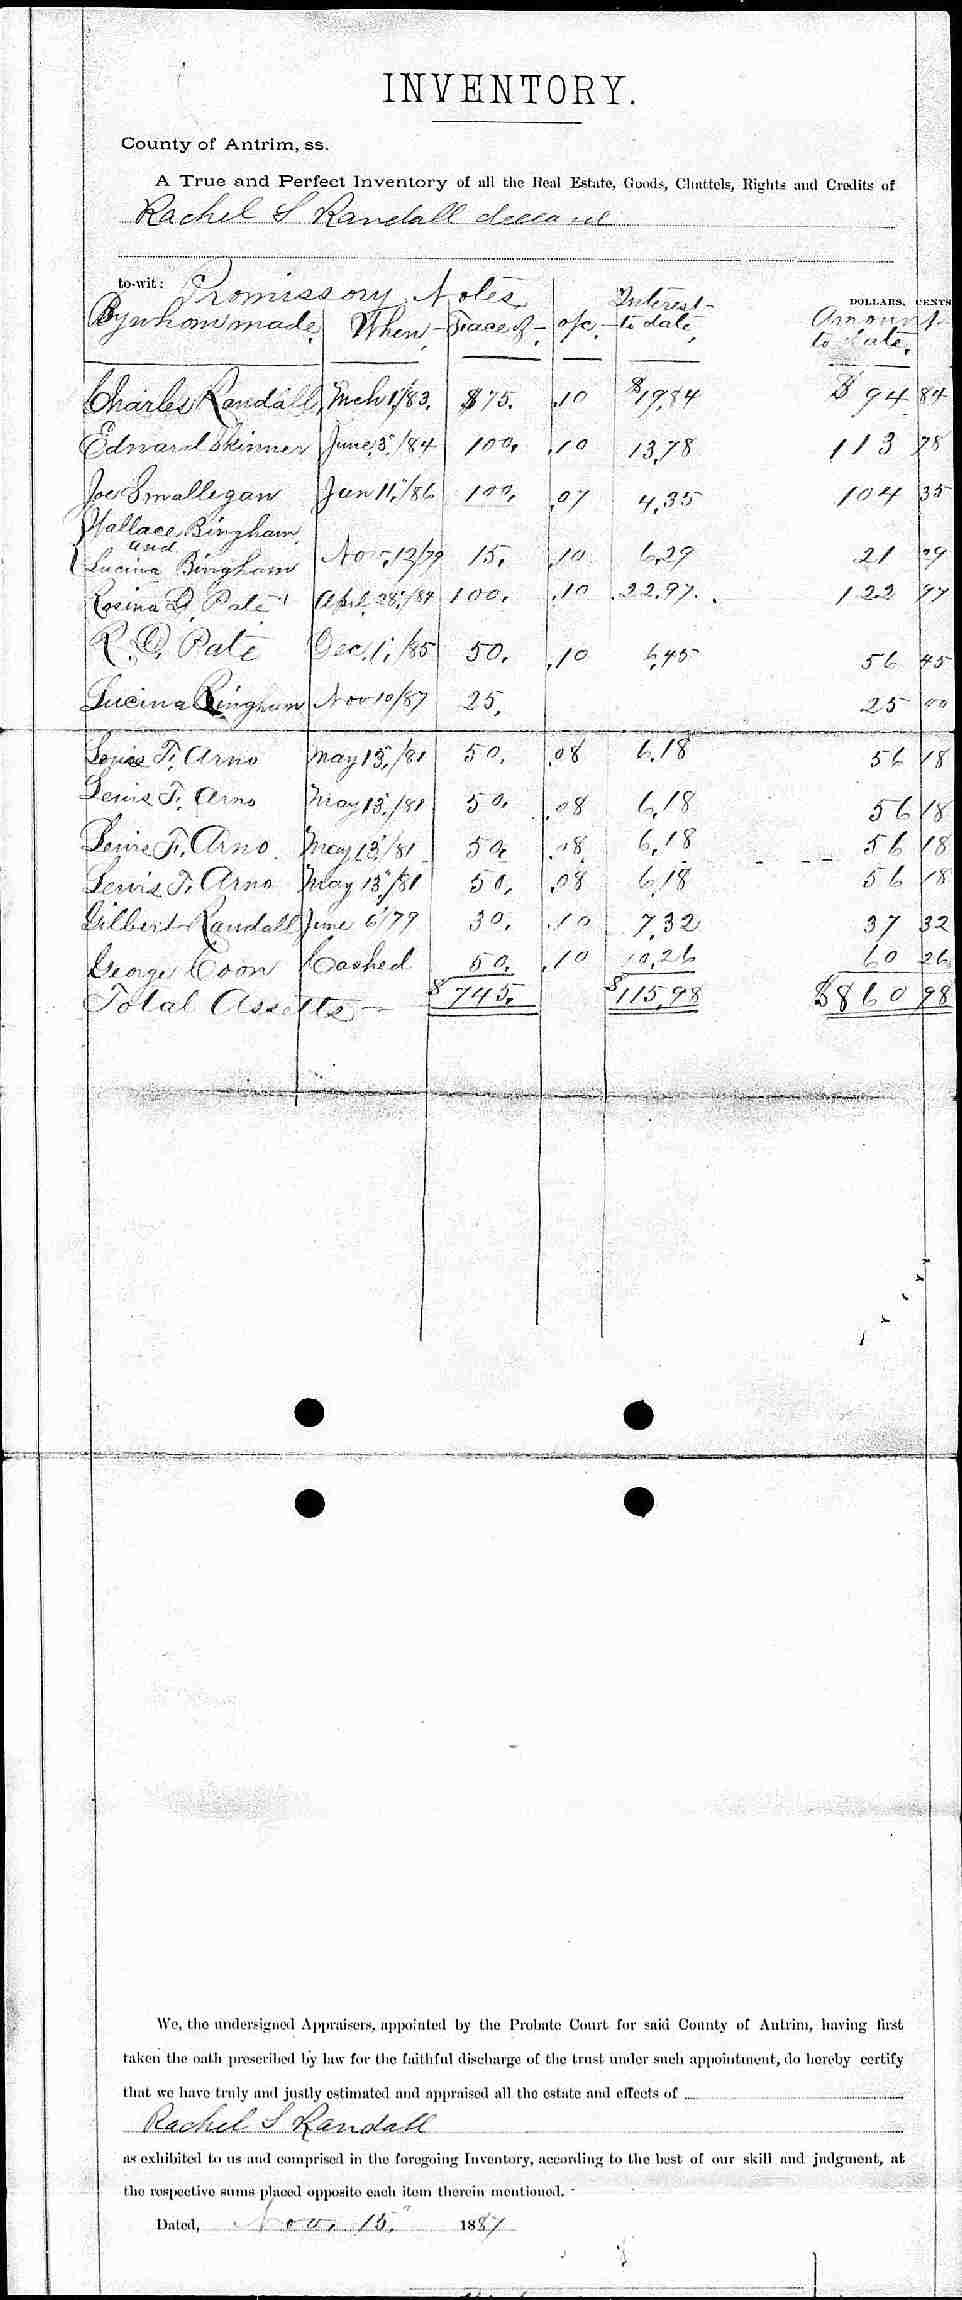 INVENTORY.
County of Antrim, ss.
A True and Perfect Inventory of all the Real Estate, Goods, Chattels, Rights and Credits of
Rachel S Randall deceased
to-wit: Promissory Notes
DOLLARS. CENTS
By whom made, When, Face of, o/c. Interest to date, Amount to date,
Charles Randall Mch 1/83. $75. .10 $19.84 $94 84
Edward Skinner June, 3, /84 100, .10 13,78 113 78
Joe Smallegan Jan 11, /86 100, .07 4,35 104 35
Wallace Bingham
and
Lucina Bingham Nov, 12/79 15. .10 6.29 21 29
Rosina D. Pate Apl. 28, /84 100. .10 22.97. 122 97
R. D. Pate Dec, 1, /85 50, .10 6,45 56 45
Lucina Bingham Nov 10/87 25, 25 00
Lewis F. Arno May 13, /81 50, .08 6,18 56 18
Lewis F. Arno May 13, /81 50, .08 6,18 56 18
Lewis F. Arno May 13, /81 50, .08 6,18 56 18
Lewis F. Arno May 13, /81 50, .08 6,18 56 18
Gilbert Randall June 6/79 30, .10 7,32 37 32
George Coon Cashed 50, .10 10,26 60 26
Total Assetts $745. $115,98 $860 98
We, the undersigned Appraisers, appointed by the Probate Court for said County of Antrim, having first
taken the oath prescribed by law for the faithful discharge of the trust under such appointment, do hereby certify
that we have truly and justly estimated and appraised all the estate and effects of
Rachel S Randall
as exhibited to us and comprised in the foregoing Inventory, according to the best of our skill and judgment, at
the respective sums placed opposite each item therein mentioned.
Dated, Nov. 15, 1887